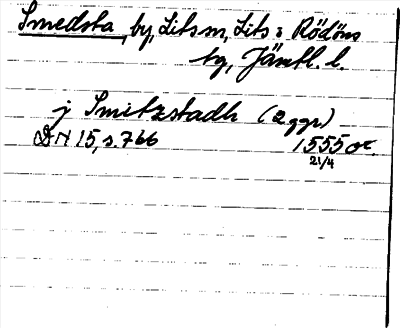 Smedsta, by, Lits sn, Lits o Rödöns
tg, Jämtl. l.
j Smitzstadh (2 ggr)
DN 15, s. 766 1555 or.
21/4